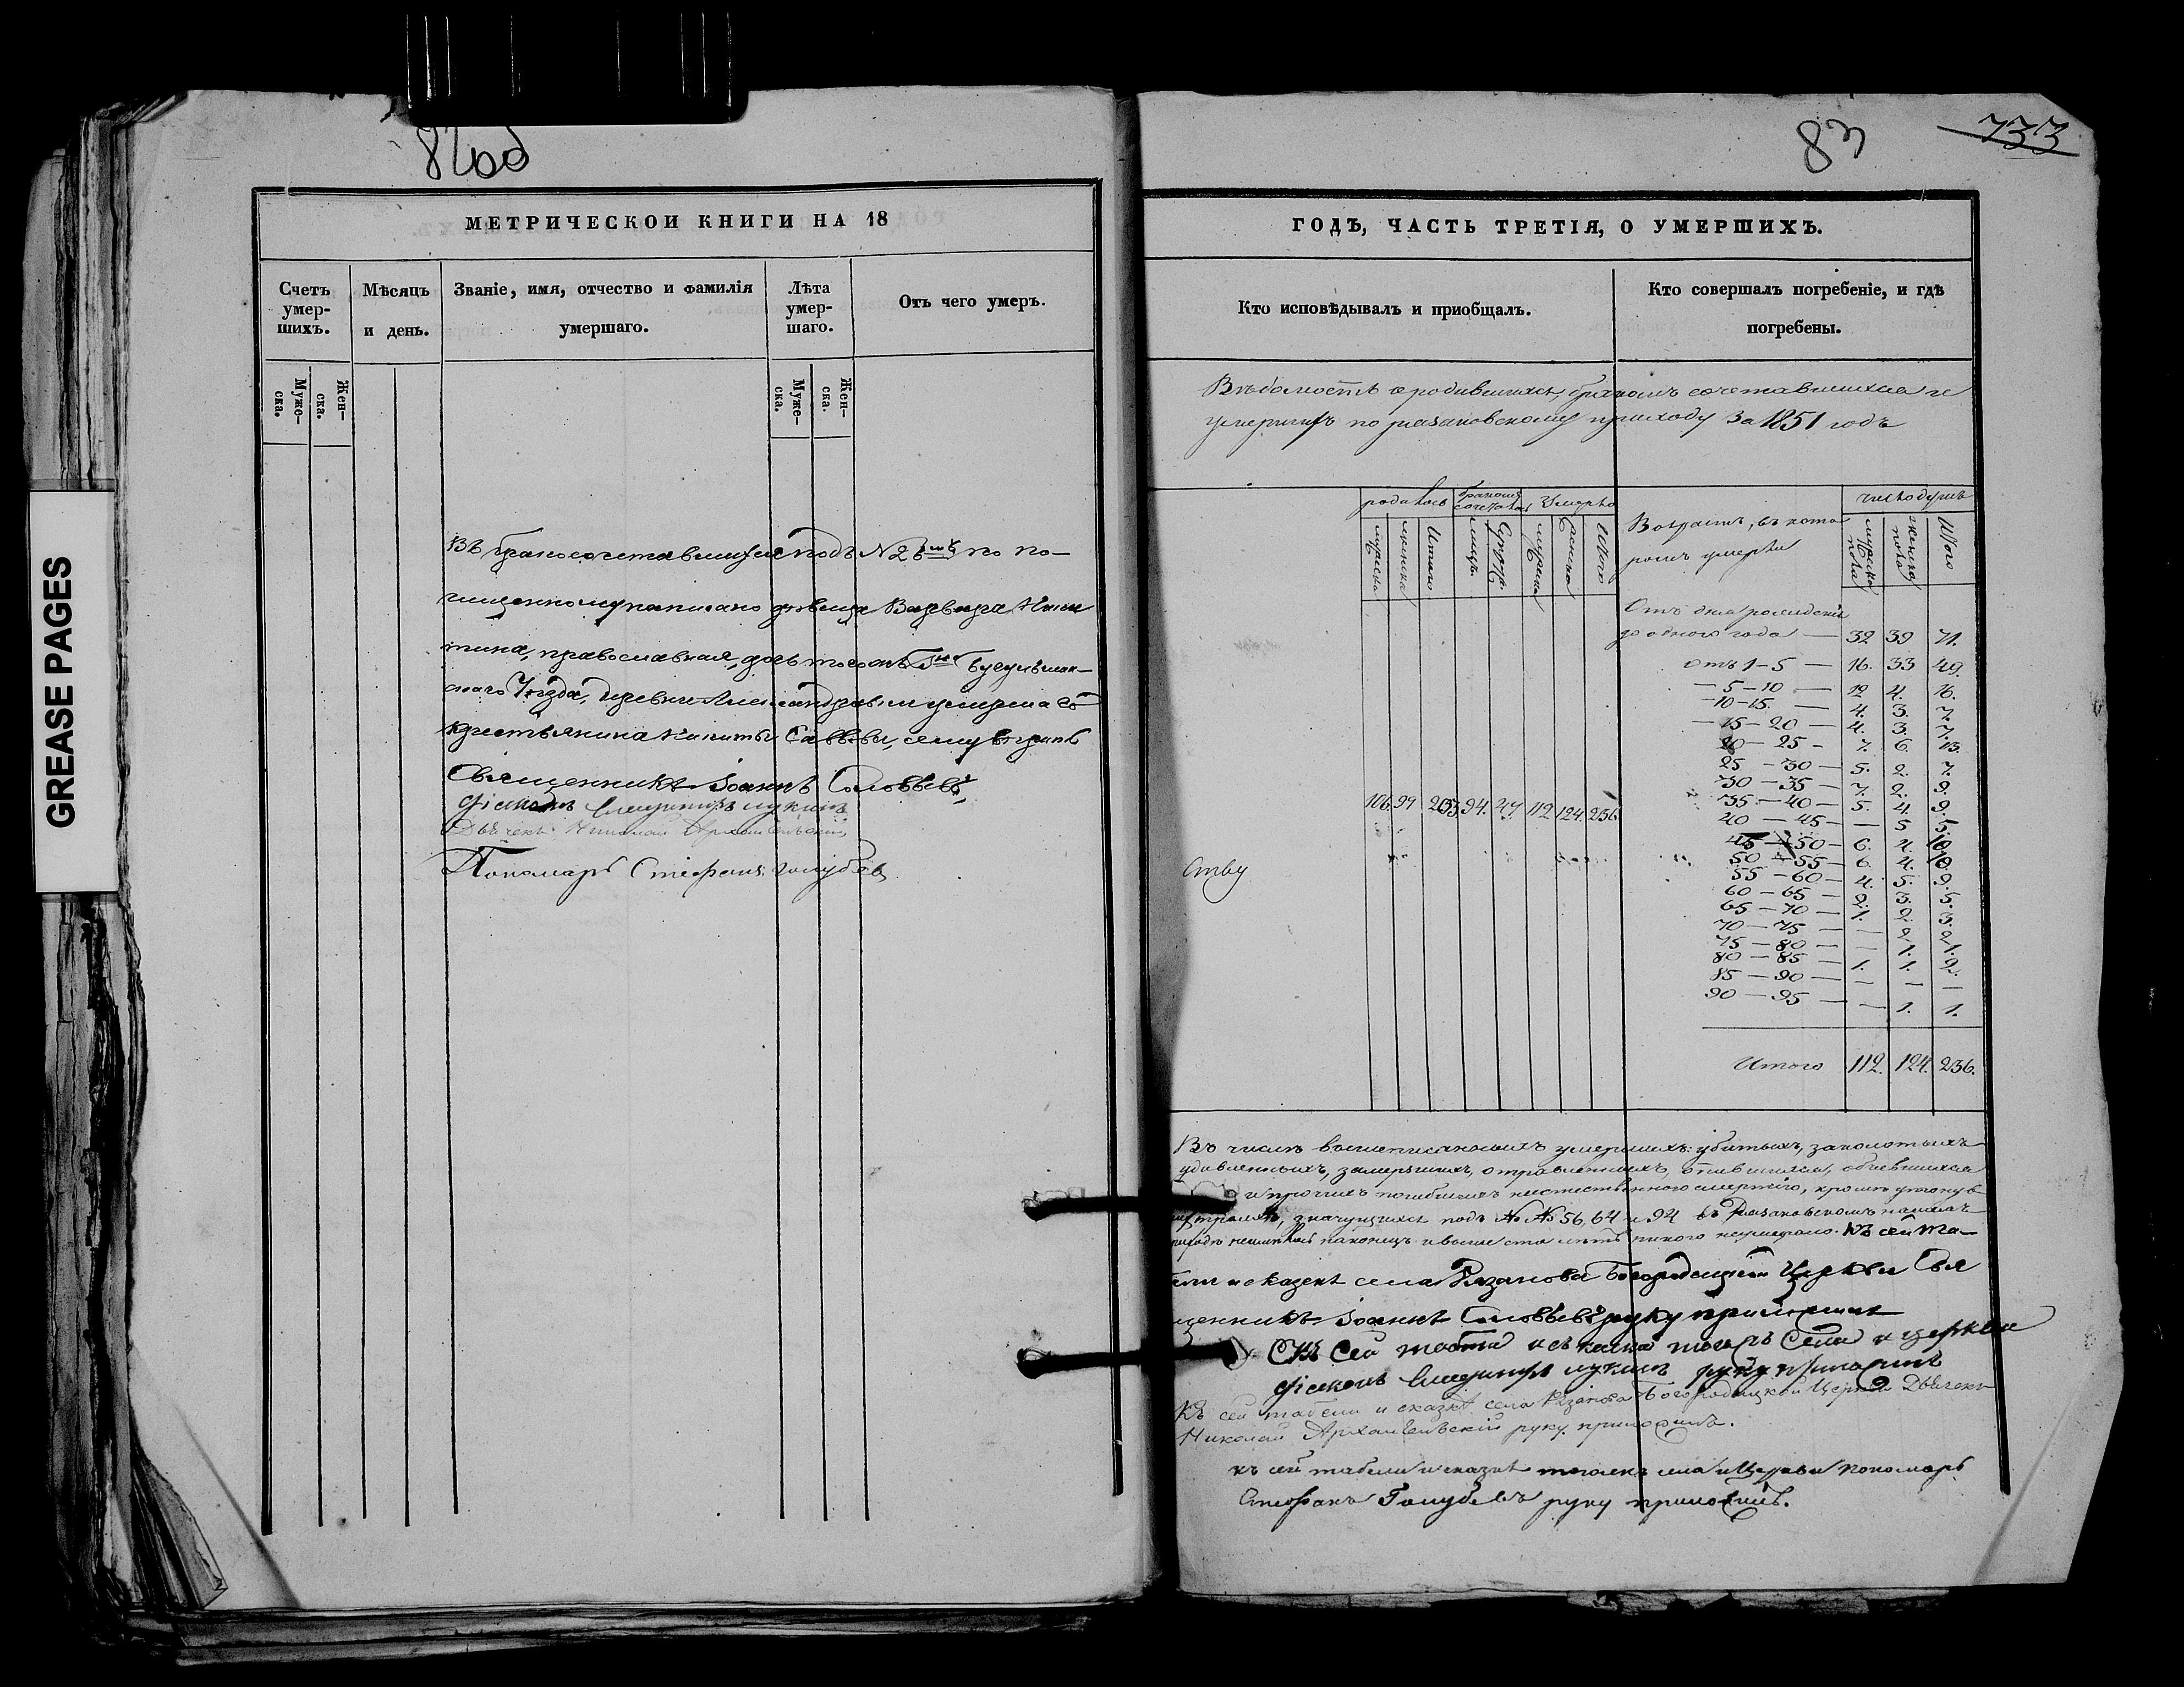 GREASE PAGES
82об
МЕТРИЧЕСКОЙ КНИГИ НА 18
Счетъ умер-шихъ.
Мѣсяцъ и день.
Званіе, имя, отчество и фамилія умершаго.
Лѣта умер-шаго.
Отъ чего умеръ.
Муже-ска.
Жен-ска.
Муже-ска.
Жен-ска.
Въ бракосочетавшихся подъ №2 по по-
чищенному написано дѣвица Варвара Ники
тина, православная, дочь
скаго Уѣзда, деревни Александровки умерша го
крестьянина Никиты Саввѣва, сему вѣрить
Священникъ Іоаннъ Соловьевъ
Діаконъ Лукинъ
Дьячекъ Николай Архангельскій
Пономарь Стефанъ Голубевъ
83
733
ГОДЪ, ЧАСТЬ ТРЕТІЯ, О УМЕРШИХЪ.
Кто исповѣдывалъ и приобщалъ.
Кто совершалъ погребеніе, и гдѣ погребены.
Вѣдомость о родившихся, бракомъ сочетавшихся и
умершихъ по рязановскому приходу За 1851 годъ
родилось
бракомъ сочеталось
Умерло
Возрастъ, въ кото
ромъ умерли
число душъ
мужска
женска
Итого
лицъ
мужска
женска
Итого
мужска пола
женска пола
Итого
Отъ дня рожденія
до одного года — 32 39 71.
отъ 1–5 — 16. 33 49.
— 5–10 — 12 4. 16.
— 10–15 — 4. 3. 7.
— 15–20 — 4. 3. 7.
20–25 – 7. 6. 13.
25–30 — 5. 2. 7.
30–35 — 7. 2. 9.
35–40 — 5. 4. 9.
40–45 — — 5 5.
45–50 – 6. 4. 10
50–55 – 6. 4. 10.
55–60 – 4. 5. 9.
60–65 — 2. 3. 5.
65–70 — 1. 2. 3.
70–75 — — 2. 2.
75–80 — — 1. 1.
80–85 — 1. 1. 2.
85–90 — — — —
90–95 — — 1. 1.
106. 99 205. 94. 47. 112. 124. 236.
ству
Итого 112. 124. 236.
Въ числѣ вышеписанныхъ умершихъ: убитыхъ, заколотыхъ
удавленныхъ, замерзшихъ, отравленныхъ, опившихся, объевшихся
и прочихъ погибшихъ неестественною смертію, кромѣ утонув
значущихся подъ №№ 56, 64 и 94 въ Рязановскомъ нашемъ
наконецъ и выше ста лѣтъ никого не умерало. Къ сей та-
бели и сказкѣ села Рязанова Богородицкой Церкви Свя
щенникъ Іоаннъ Соловьевъ руку приложилъ
Къ сей табели и сказке тогожъ Села и церкви
Діаконъ Лукинъ руку приложилъ
Къ сей табели и сказкѣ села Рязанова Богородицкой Церкви Дьячекъ
Николай Архангельскій руку приложилъ.
къ сей табели и сказкѣ тогожъ села и Церкви пономарь
Стефанъ Голубевъ руку приложилъ.